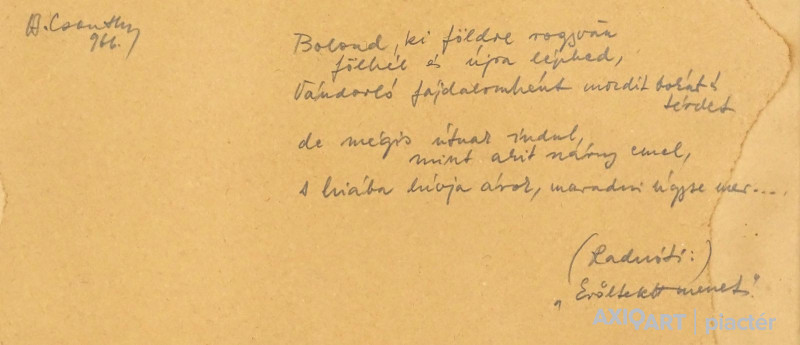 B. Csonthy
966.
Bolond, ki földre rogyván
fölkél és újra lépked,
Vándorló fájdalomként mozdit bokát s
térdet
de mégis útnak indul,
mint akit szárny emel,
s hiába hívja árok, maradni úgyse mer....
(Radnóti:)
„Erőltetett menet"
AXIOART | piactér